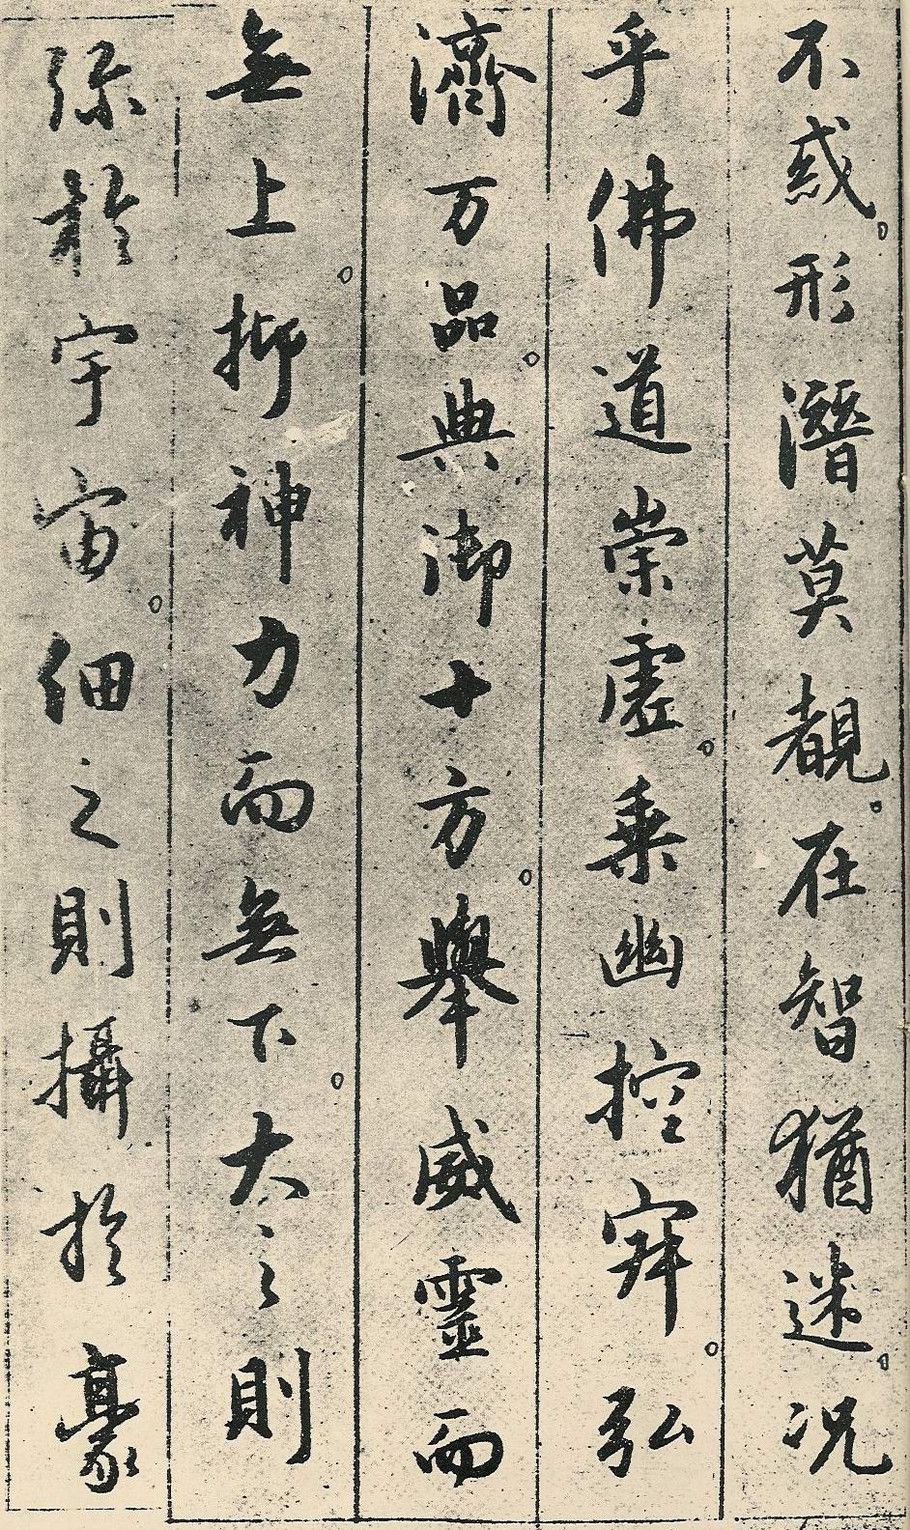 不惑。形潛莫覩。在智猶迷。况
乎佛道崇虛。乗幽控寂。弘
濟万品。典御十方。舉威靈而
無上。抑神力而無下。大之則
弥於宇宙。細之則攝於豪